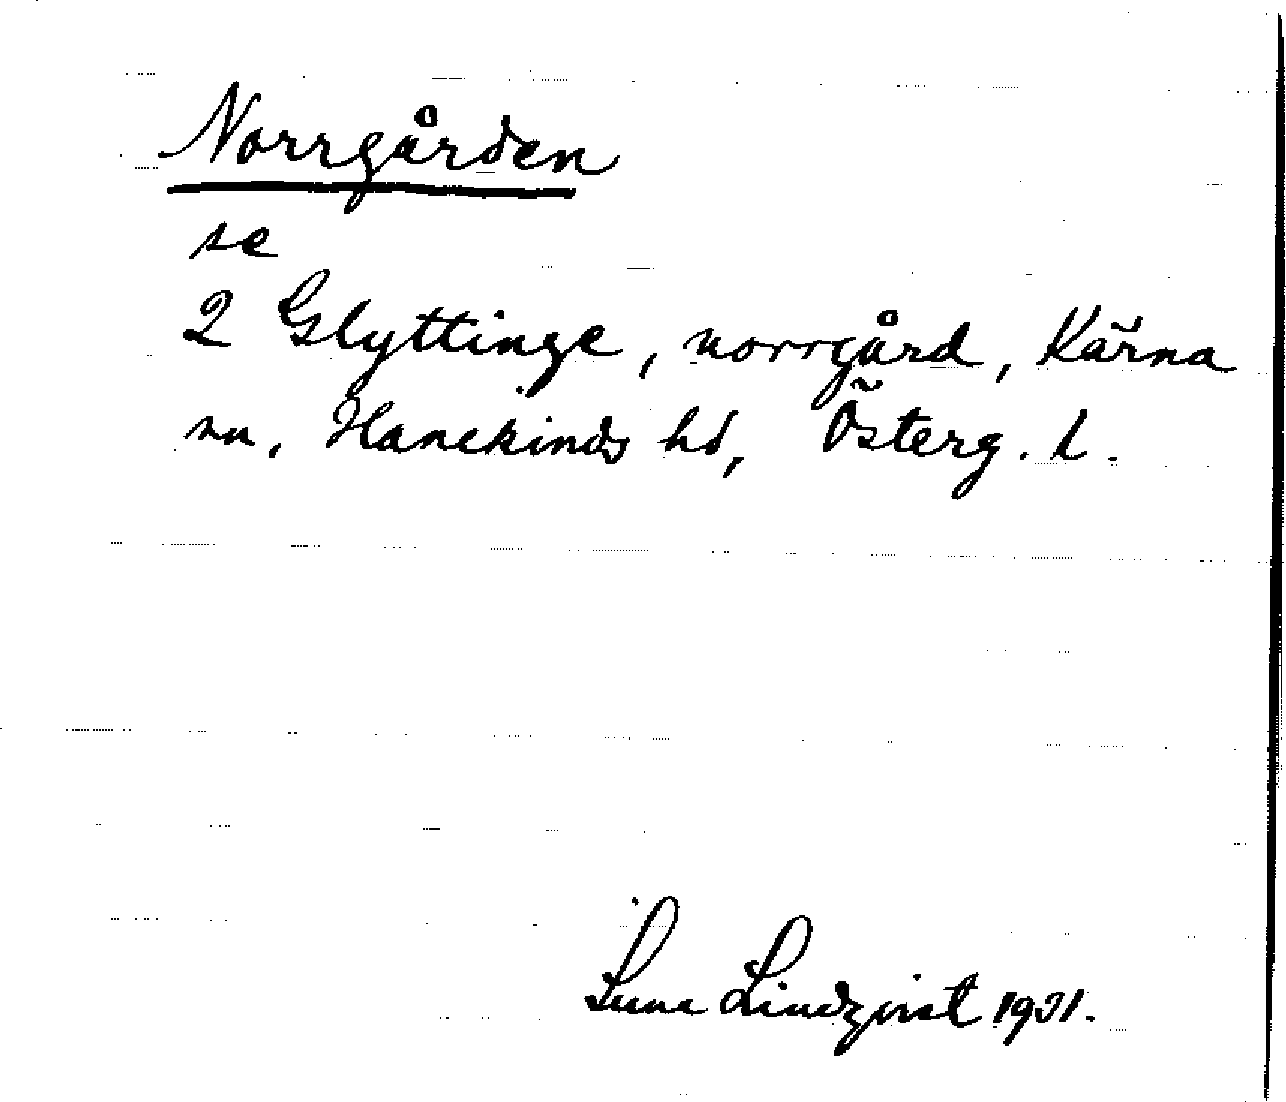 Norrgården
se
2 Glyttinge, norrgård, Kärna
sn, Hanekinds hd, Österg. l.
Sune Lindqvist 1931.